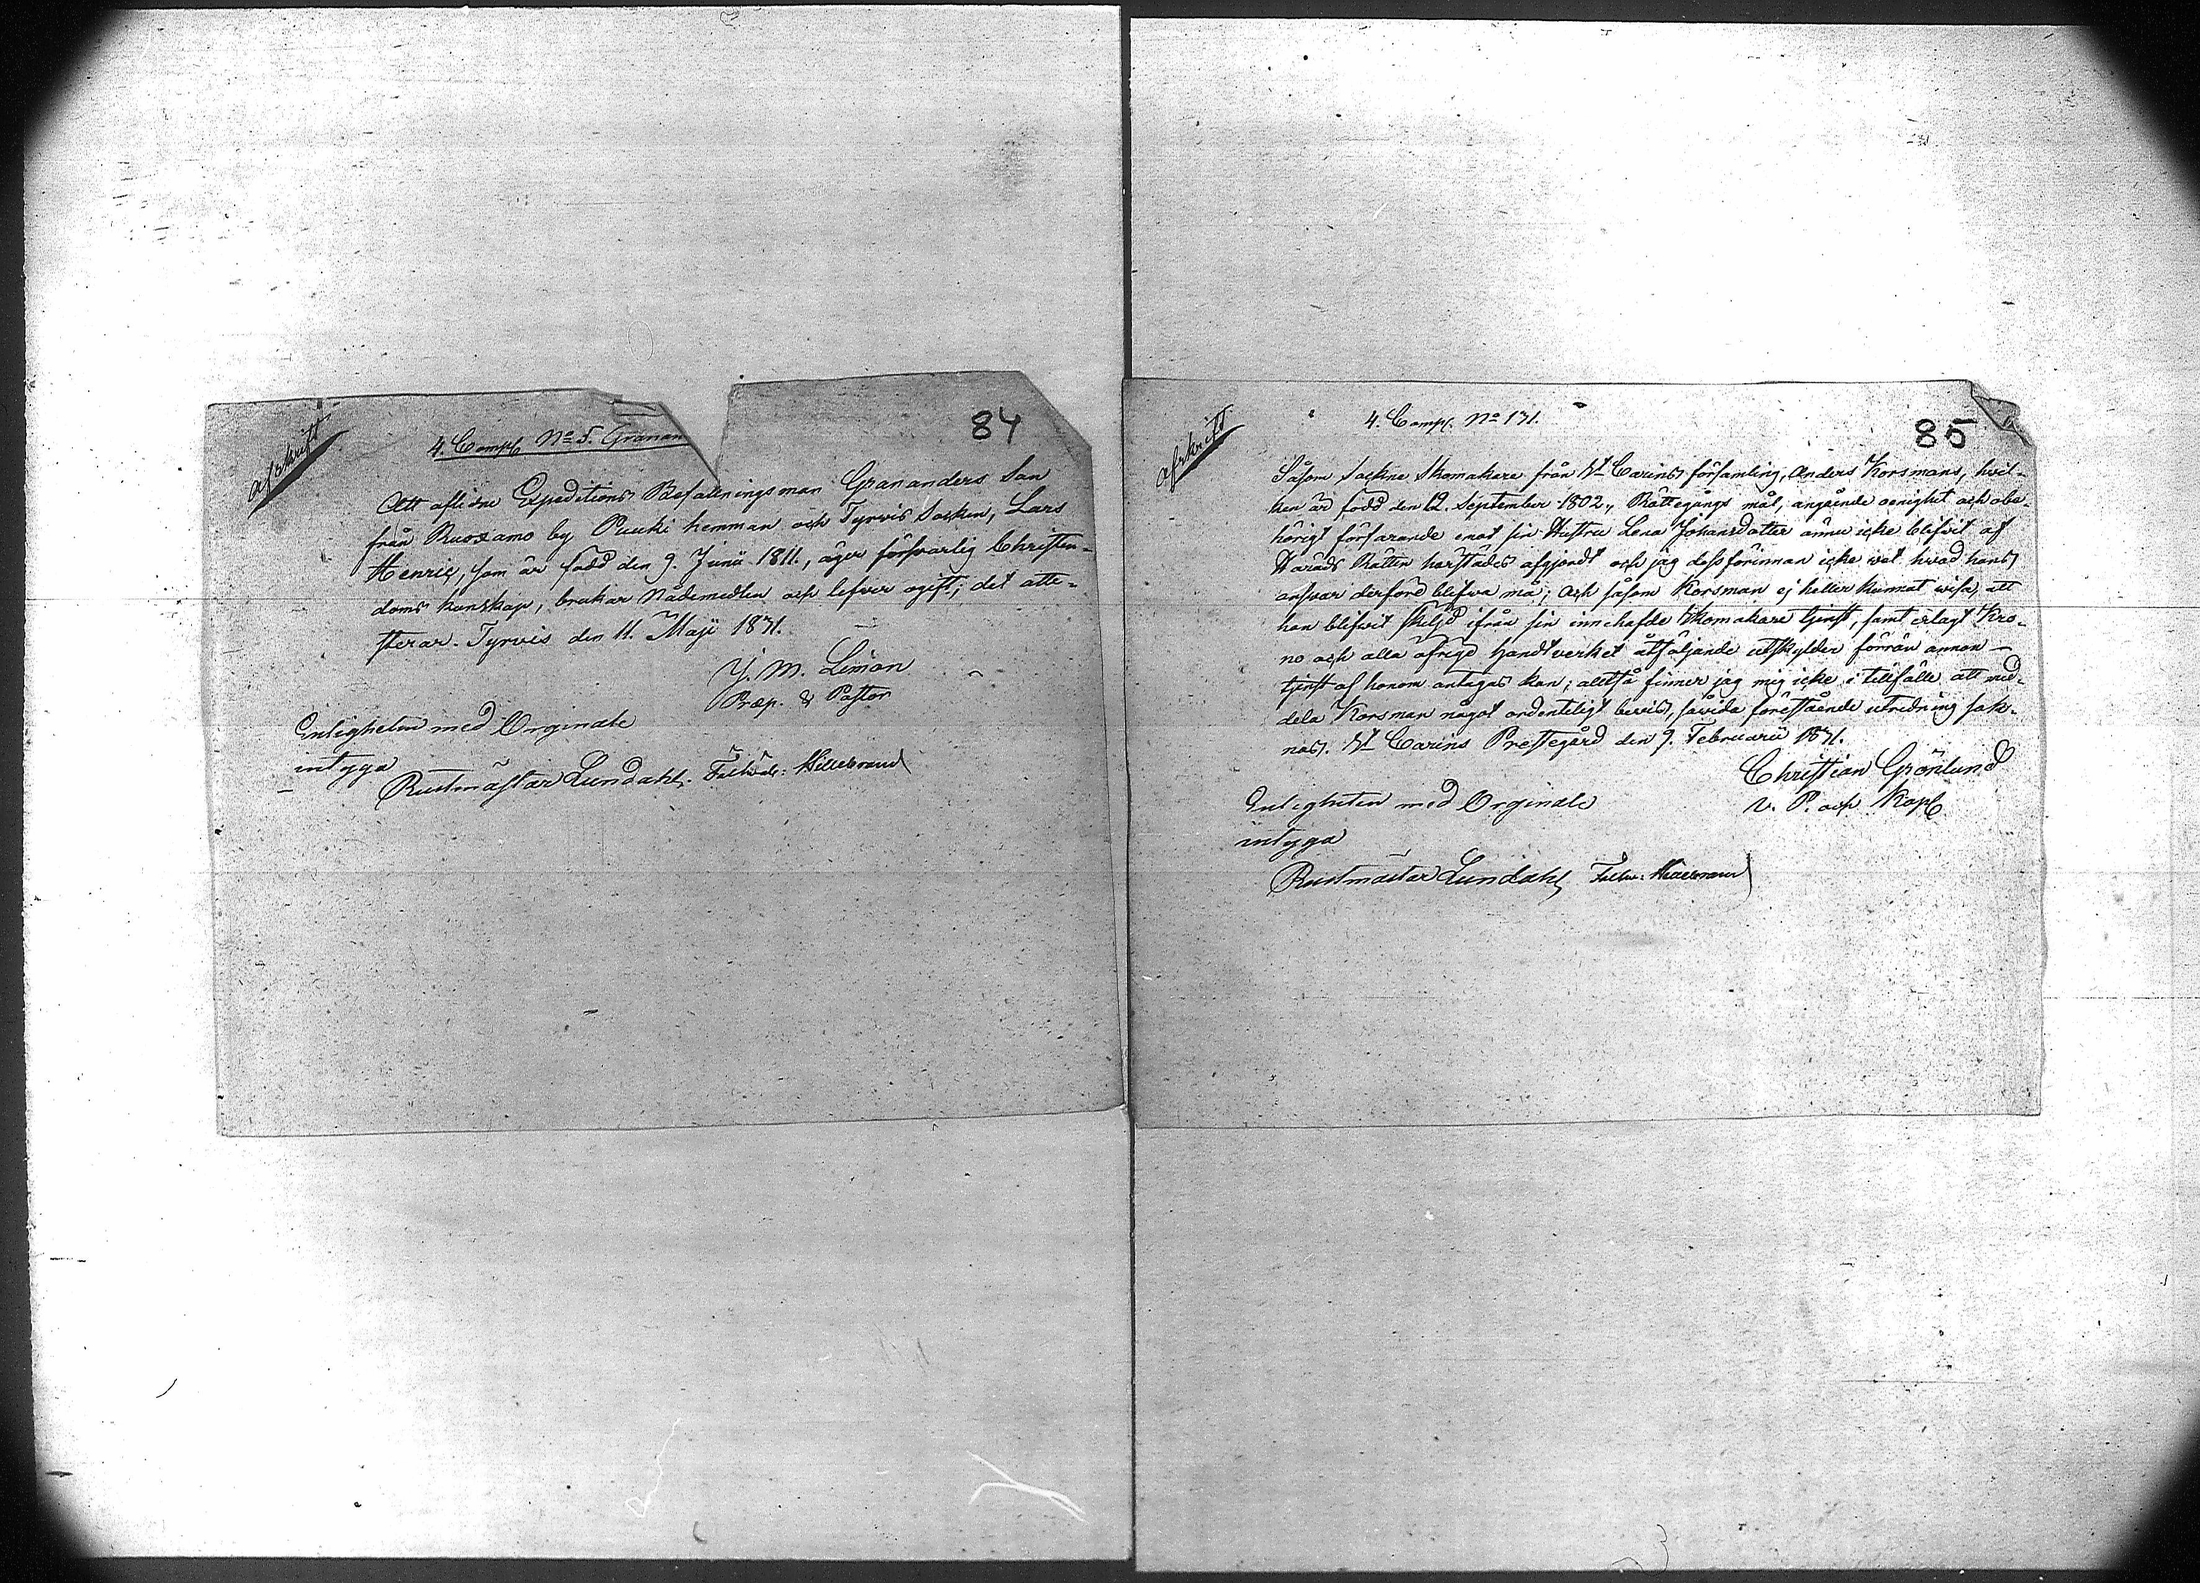 afskrift
4. Comp. No 5. Granan
84
Att aflidne Expeditions Befallningsman Grananders Son
från Ruoxamo by Puuki hemman och Tyrvis Socken, Lars
Henric, som är född den 9. Junii 1811, äger försvarlig Christen-
doms kunskap, brukar Nådemedlen och lefver ogift; det atte-
sterar. Tyrvis den 11. Maji 1831.
J. M. Liman
Præp. & Pastor
Enligheten med Orginale
intyga
Rustmästar Lundahl. Hillebrand
afskrift
4. Comp. No 131.
85
Såsom Sockne Skomakare från St Carins församling, Anders Korsmans, hvil-
ken är född den 12. September 1802, Rättegångs mål, angående oenighet och obe-
hörigt förfarande emot sin Hustru Lena Johansdotter ännu icke blifvit af
Härads Rätten härstädes afgjordt och jag dessförinnan icke vet hvad hans
ansvar derföre blifva må; och såsom Korsman ej heller kunnat visa, att
han blifvit skiljd ifrån sin innehafde Skomakare tjenst, samt erlagt Kro-
no och alla öfrige Handtverket åtföljande utskylder förrän annan
tjenst af honom antagas kan; alltså finner jag mig icke i tillfälle att med-
dela Korsman något ordenteligt bevis, såvida förestående utredning sak-
nas. St Carins Prestegård den 9. Februarii 1831.
Christian Grönlund
v. P. och Kapl
Enligheten med Orginale
intyga
Rustmästar Lundahl Hillebrand